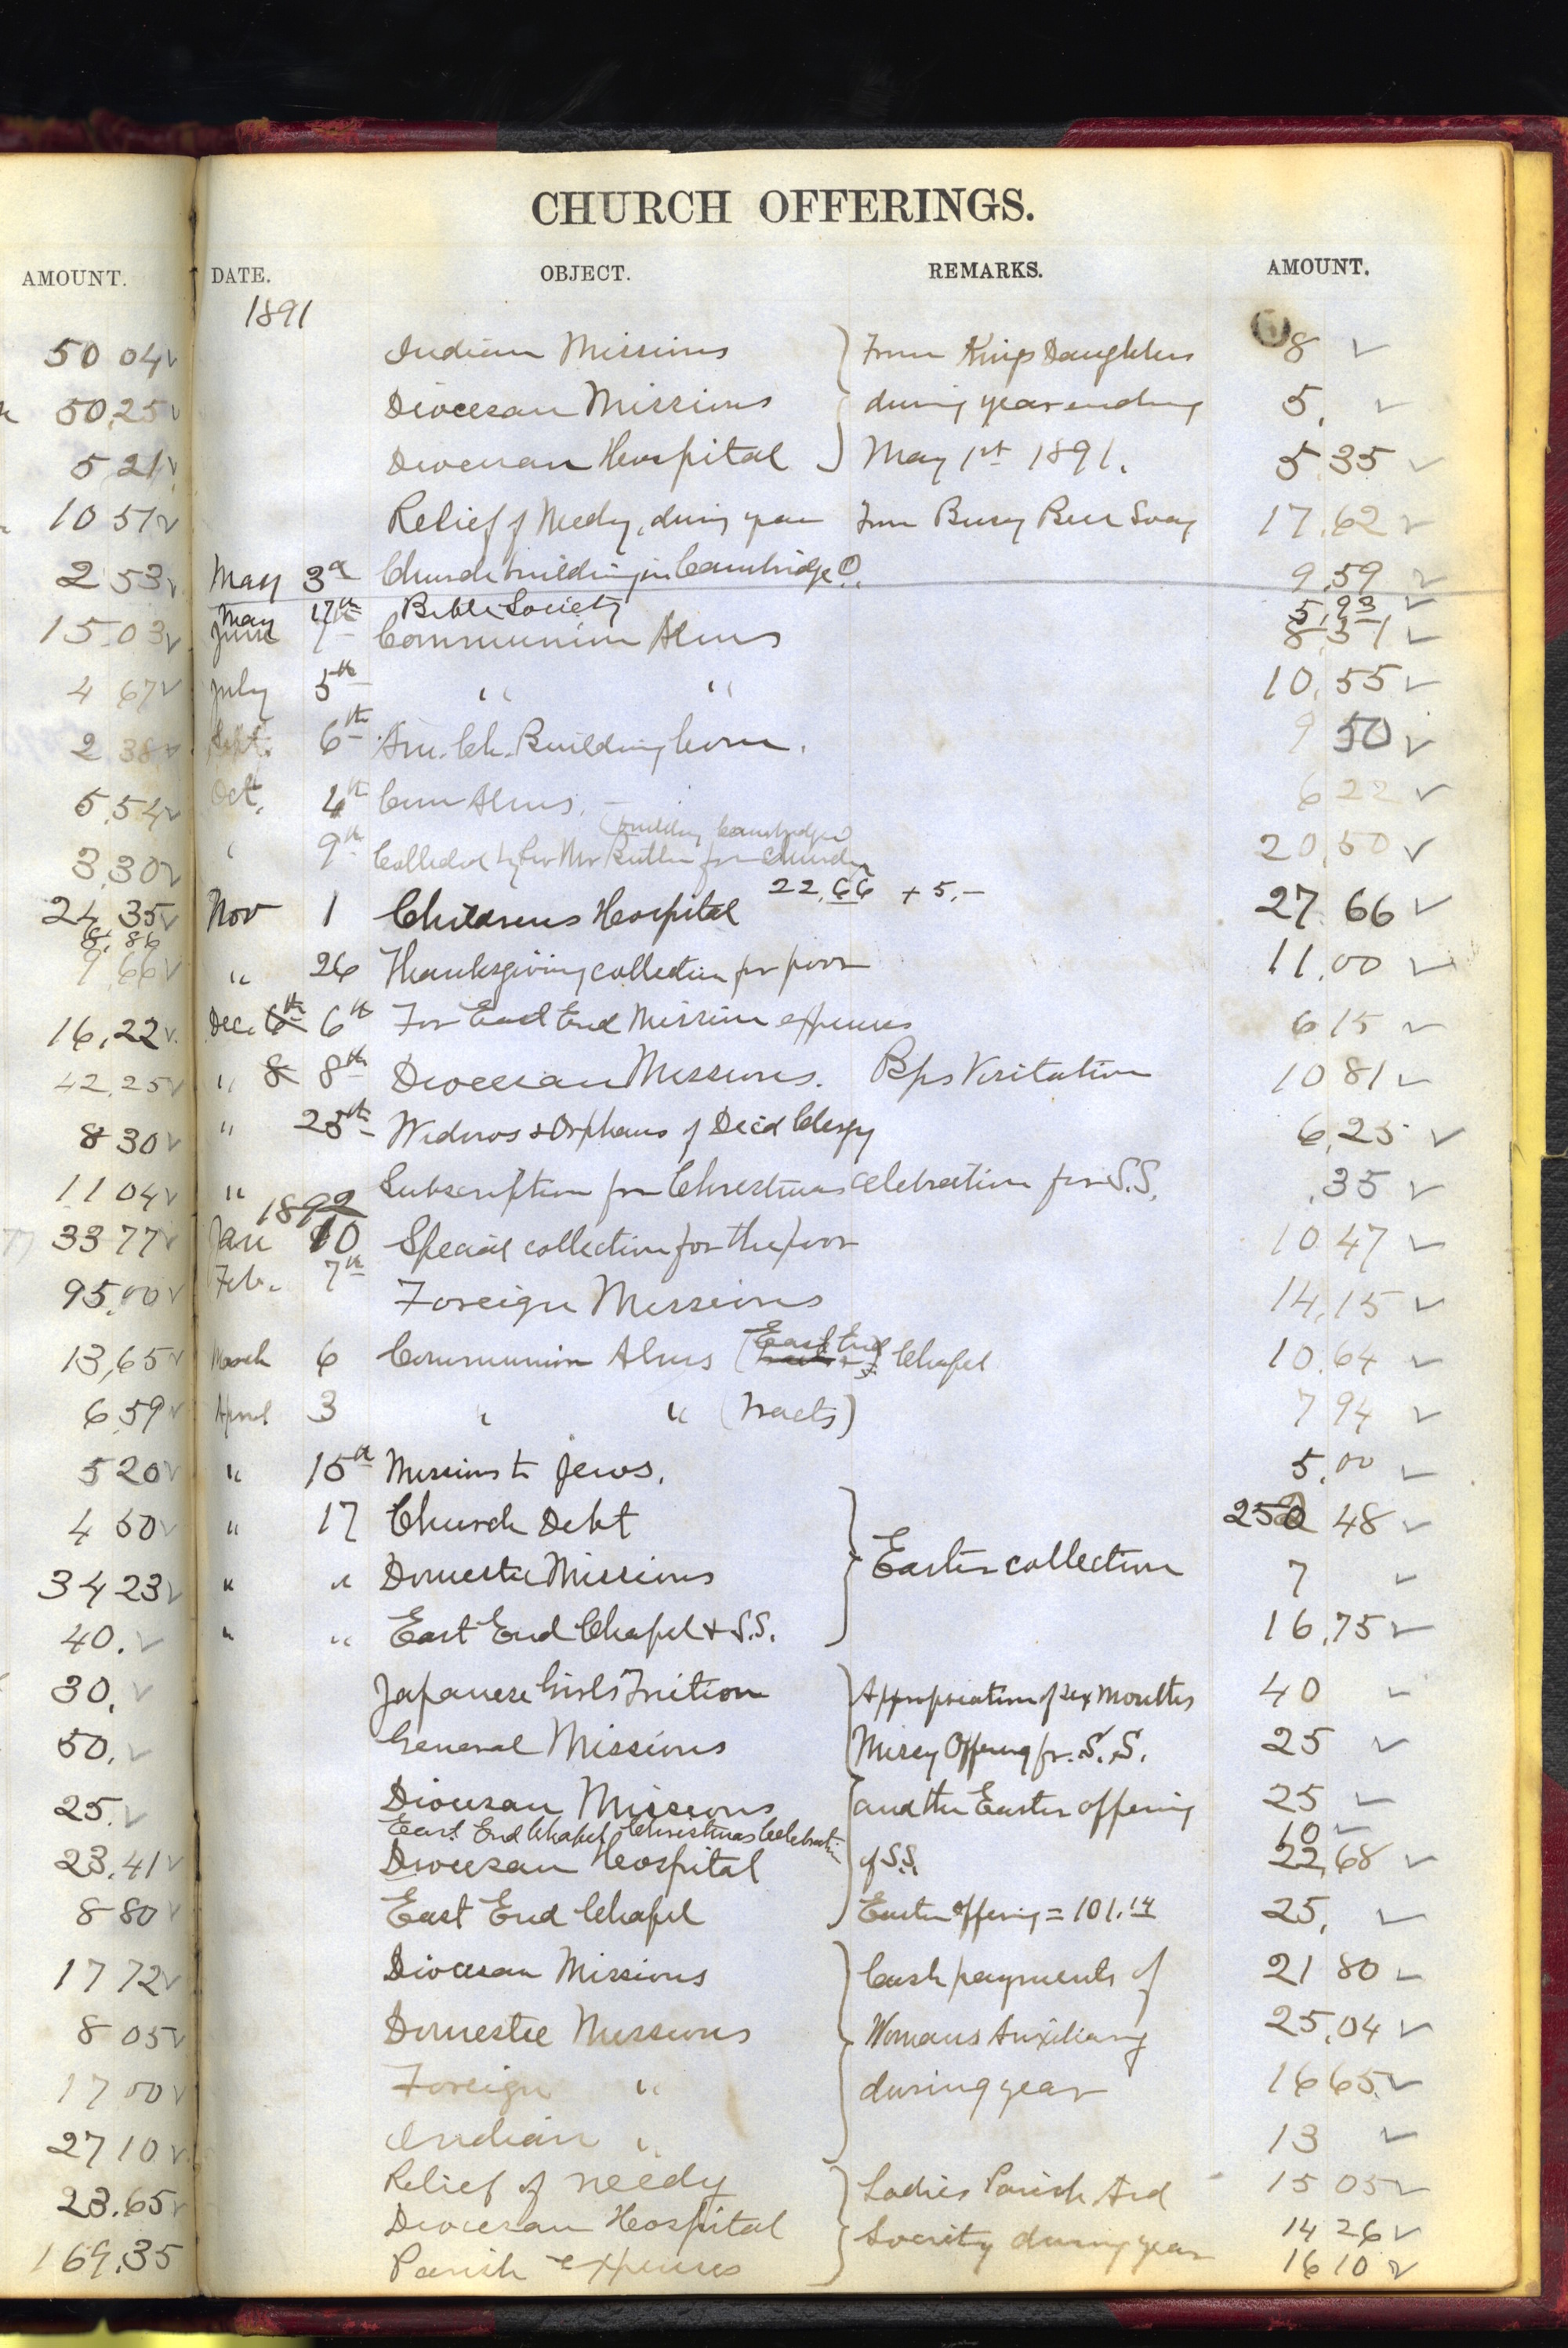 CHURCH OFFERINGS.
AMOUNT. DATE. OBJECT. REMARKS. AMOUNT.
1891
50 04 Indian Missions From Kings Daughters 8
50,25 Diocesan Missions during year ending 5,
5 21 Diocesan Hospital May 1st 1891. 5 35
10 51 Relief of Needy, during year from Busy Bee Socy 17,62
2 53 May 3d Church building in Cambridge O. 9,59
May 17th Bible Society 5,93
15.03 June 7 Communion Alms 8,31
4 67 July 5th " " 10,55
2 38 Sept. 6th Am. Ch. Building Com. 9 50
5,54 Oct. 4th Com Alms. 6 22
(building Cambridge O
3,30 " 9th Collected by Rev Mr Butler for Church 20,50
24,35 Nov 1 Childrens Hospital 22.66 + 5.- 27.66
8.86
9,66 " 26 Thanksgiving collection for poor 11,00
16,22 Dec. 6th 6th For East End Mission expenses 6 15
42,25 " 8 8th Diocesan Missions. Bps Visitation 10 81
8 30 " 25th Widows & Orphans of Dec'd Clergy 6,25
11 04 " Subscription for Christmas celebration for S.S. ,35
1892
33 77 Jan 10 Special collection for the poor 10 47
95,00 Feb. 7th Foreign Missions 14,15
13,65 March 6 Communion Alms (East End Chapel 10,64
6,59 April 3 " " (Tracts) 7 94
5 20 " 15th Missions to Jews. 5,00
4 50 " 17 Church Debt 250 48
34 23 " " Domestic Missions Easter collection 7
40. " " East End Chapel & S.S. 16,75
30, Japanese Girls Tuition Appropriation of six months 40
50, General Missions Missy Offering fr. S.S. 25
25. Diocesan Missions and the Easter offering 25
East End Chapel Christmas Celebration 10
23,41 Diocesan Hospital of S.S. 22,68
8 80 East End Chapel Easter offering = 101.14 25,
17 72 Diocesan Missions Cash payments of 21 80
8 05 Domestic Missions Womans Auxiliary 25,04
17 00 Foreign " during year 16 65
27 10 Indian " 13
23.65 Relief of needy Ladies Parish Aid 15 05
Diocesan Hospital Society during year 14 26
169,35 Parish expenses 16 10